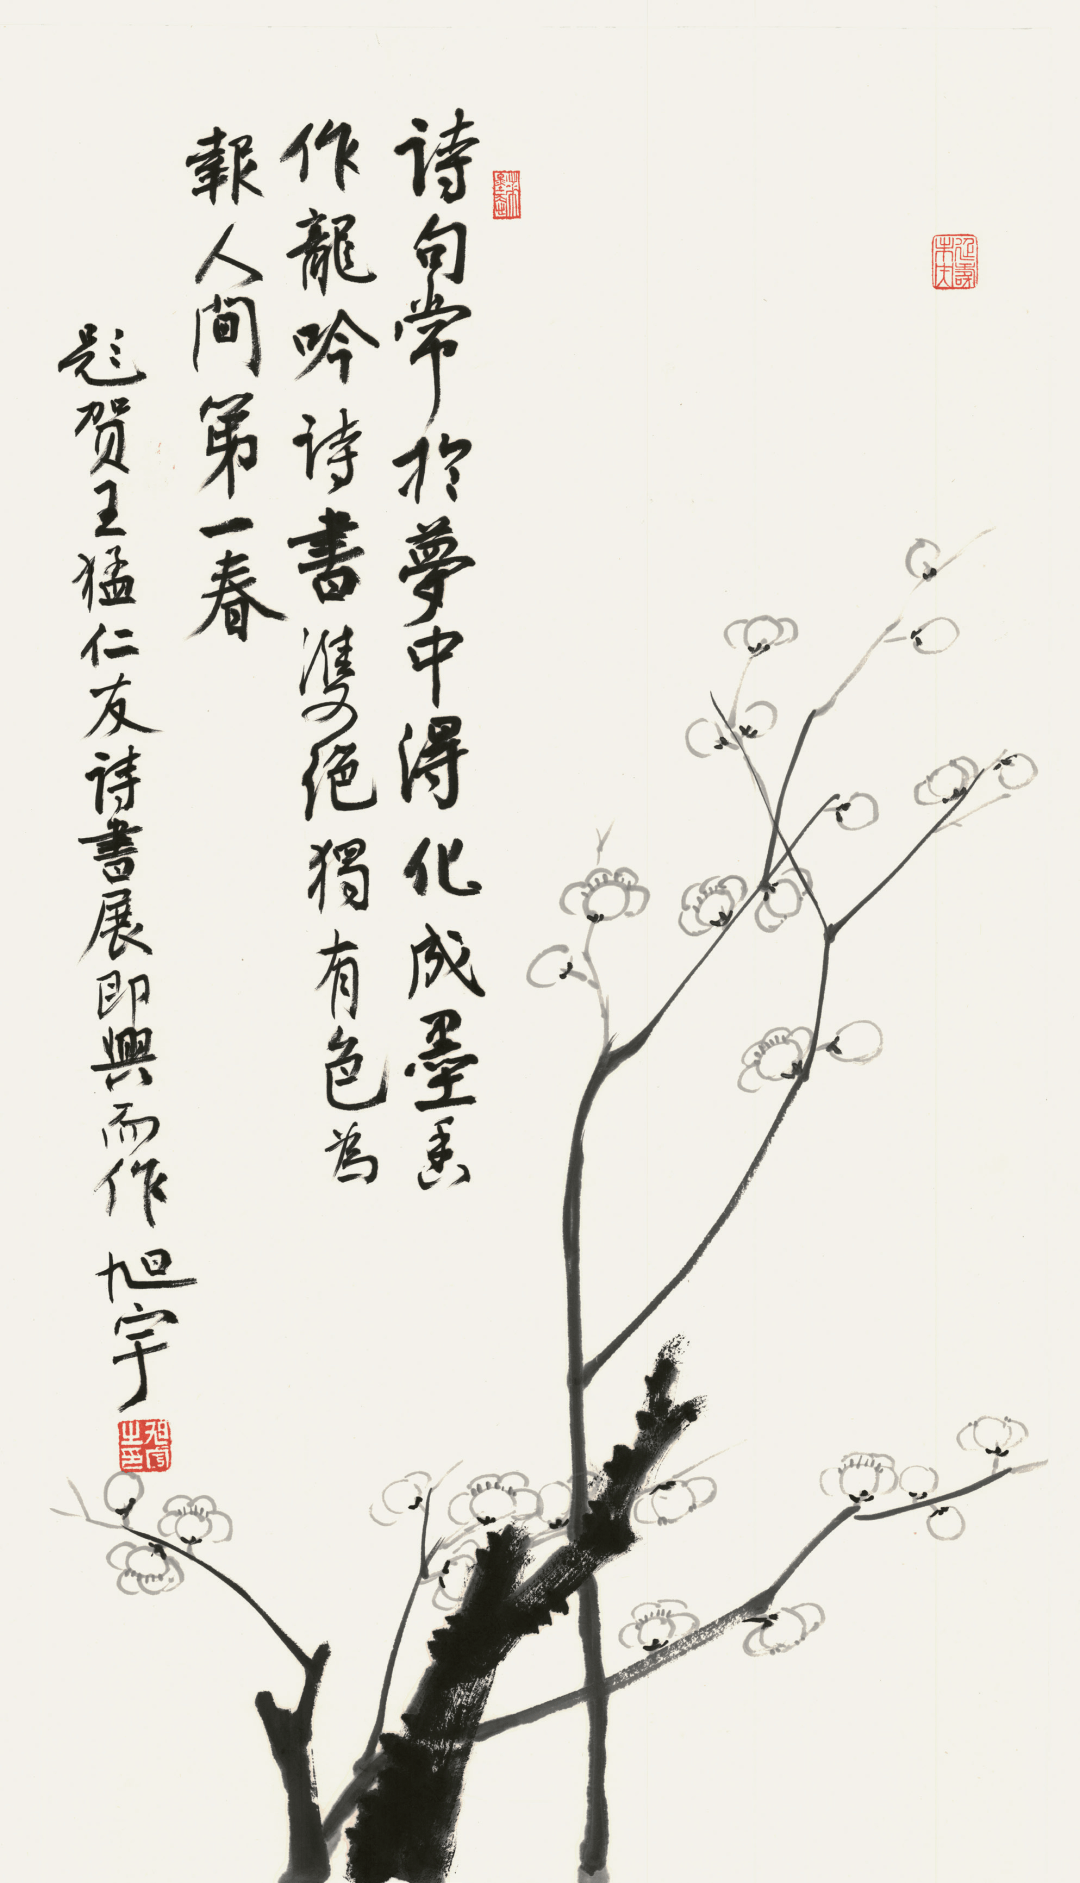 詩句常於夢中得化成墨香
作龍吟詩書雙絕獨有色為
報人間第一春
题贺王猛仁友詩書展即興而作 旭宇
旭宇之印